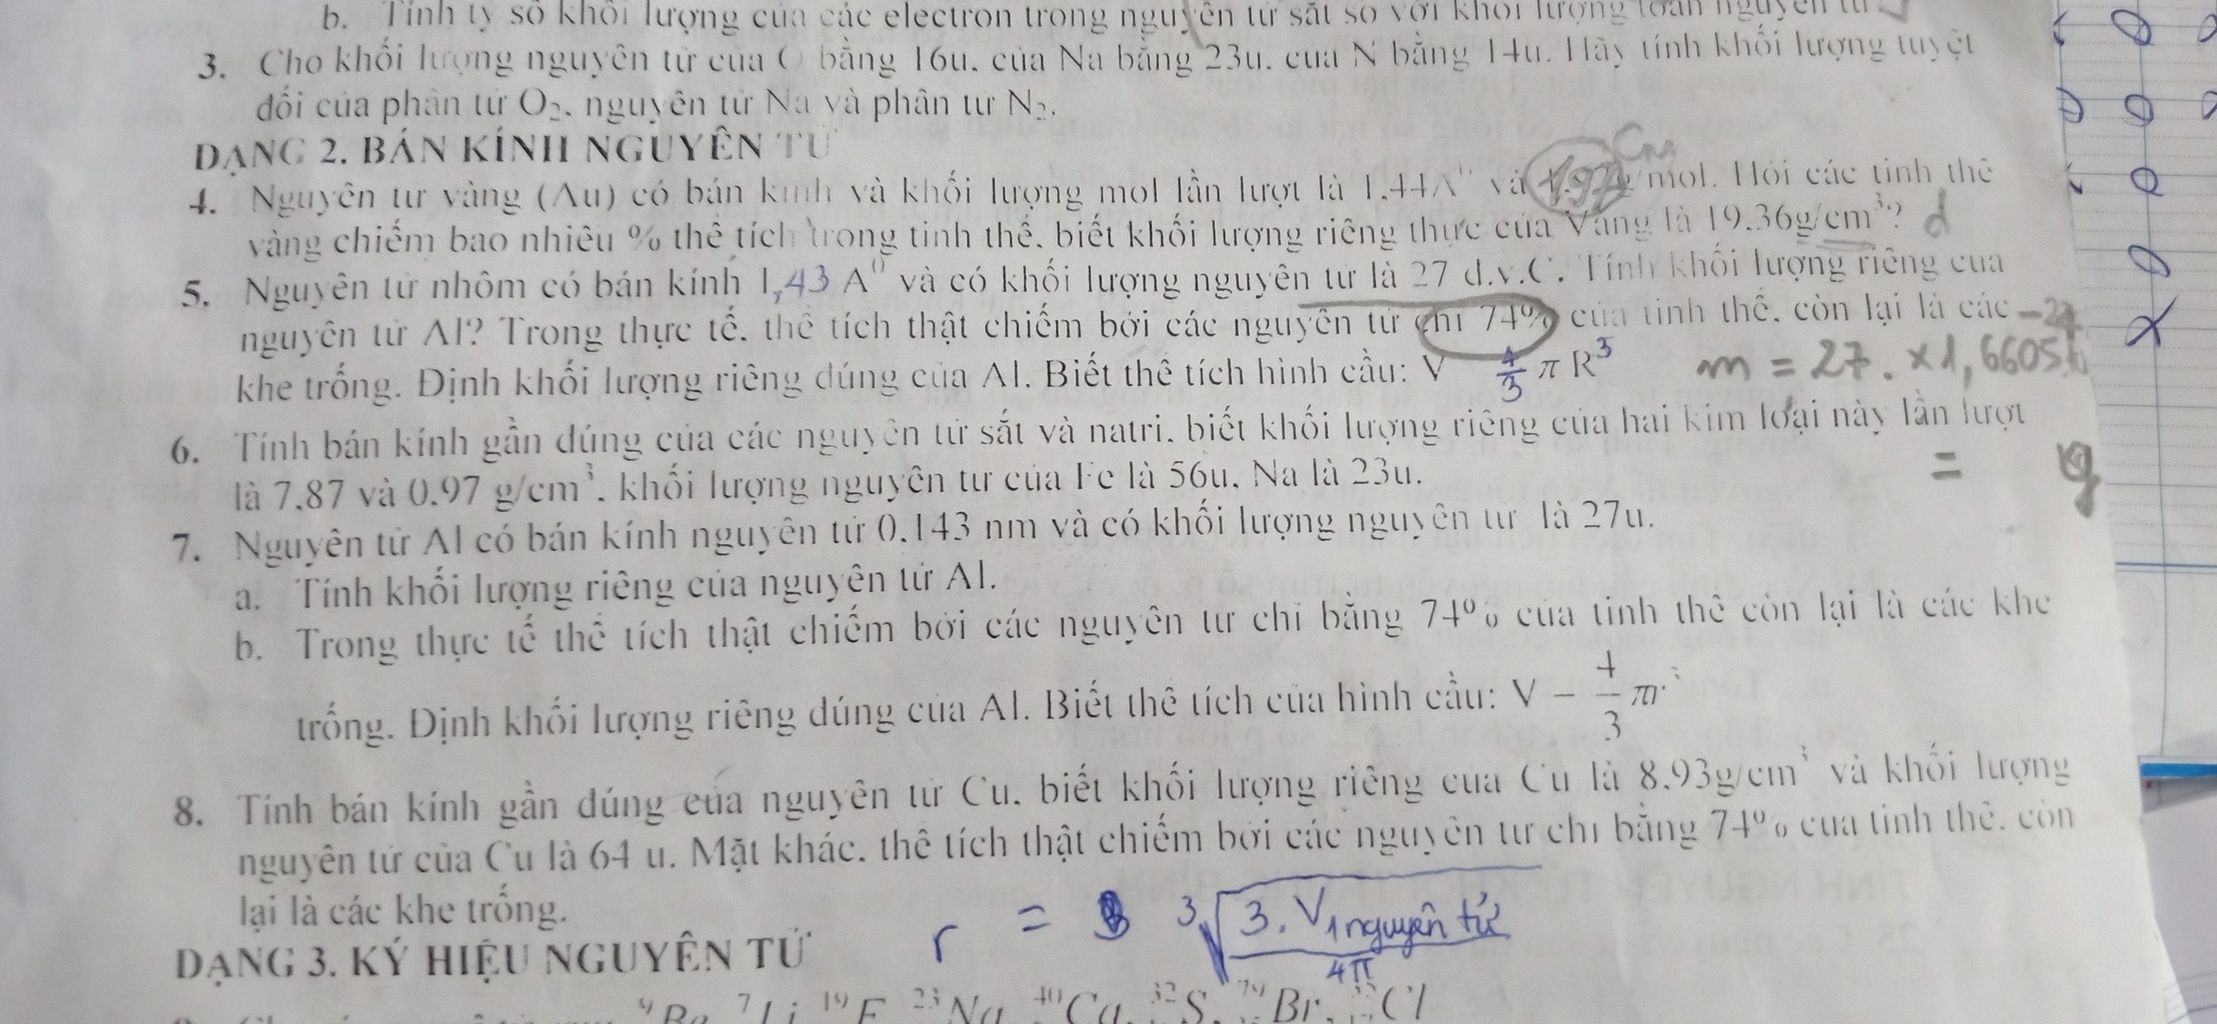 b. Tính tỷ số khối lượng của các electron trong nguyên tử sắt so với khối lượng toàn nguyên tử
3. Cho khối lượng nguyên tử của O bằng 16u, của Na bằng 23u, của N bằng 14u. Hãy tính khối lượng tuyệt
đối của phân tử O₂, nguyên tử Na và phân tử N₂.
DẠNG 2. BÁN KÍNH NGUYÊN TỬ
4. Nguyên tử vàng (Au) có bán kính và khối lượng mol lần lượt là 1,44A⁰ và 197g/mol. Hỏi các tinh thể
vàng chiếm bao nhiêu % thể tích trong tinh thể, biết khối lượng riêng thực của Vàng là 19,36g/cm³? d
5. Nguyên tử nhôm có bán kính 1,43 A⁰ và có khối lượng nguyên tử là 27 đ.v.C. Tính khối lượng riêng của
nguyên tử Al? Trong thực tế, thể tích thật chiếm bởi các nguyên tử chỉ 74% của tinh thể, còn lại là các
khe trống. Định khối lượng riêng đúng của Al. Biết thể tích hình cầu: V 4/3 π R³
m = 27 . x1,6605
=
g
6. Tính bán kính gần đúng của các nguyên tử sắt và natri, biết khối lượng riêng của hai kim loại này lần lượt
là 7,87 và 0,97 g/cm³, khối lượng nguyên tử của Fe là 56u, Na là 23u.
7. Nguyên tử Al có bán kính nguyên tử 0,143 nm và có khối lượng nguyên tử là 27u.
a. Tính khối lượng riêng của nguyên tử Al.
b. Trong thực tế thể tích thật chiếm bởi các nguyên tử chỉ bằng 74% của tinh thể còn lại là các khe
trống. Định khối lượng riêng đúng của Al. Biết thể tích của hình cầu: V = 4/3 πr³
8. Tính bán kính gần đúng của nguyên tử Cu, biết khối lượng riêng của Cu là 8,93g/cm³ và khối lượng
nguyên tử của Cu là 64 u. Mặt khác, thể tích thật chiếm bởi các nguyên tử chỉ bằng 74% của tinh thể, còn
lại là các khe trống.
r = ³√(3. V1nguyên tử / 4π)
DẠNG 3. KÝ HIỆU NGUYÊN TỬ
⁹Be ⁷Li ¹⁹F ²³Na ⁴⁰Ca, ³²S, ⁷⁹Br, Cl